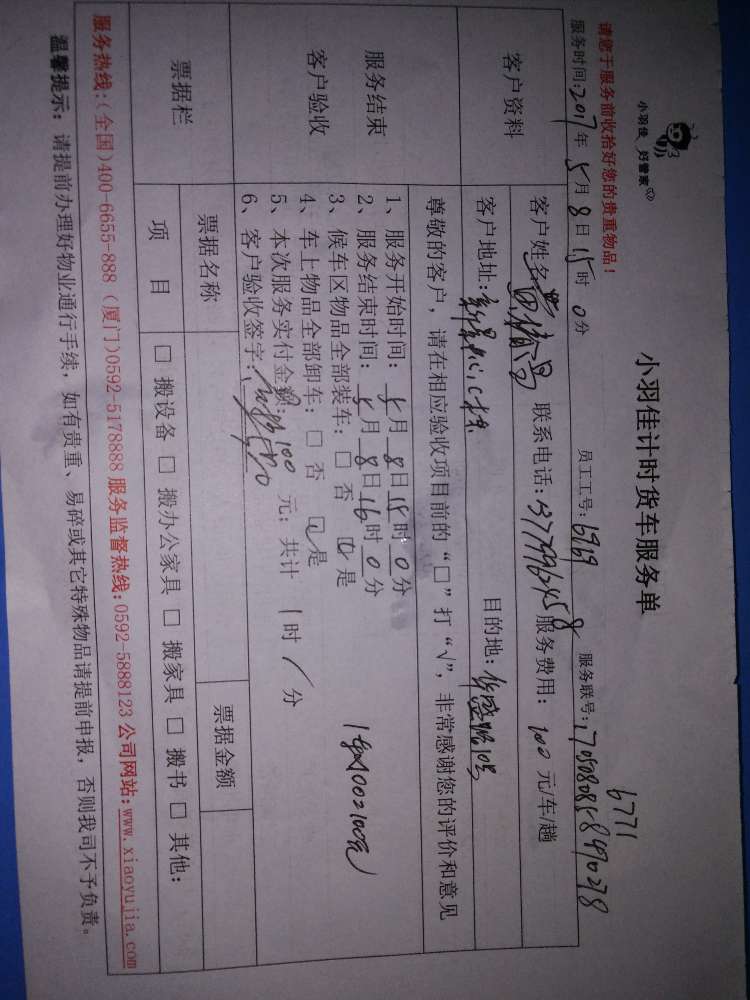 小羽佳 好管家
小羽佳计时货车服务单
请您于服务前收拾好您的贵重物品！
6771
服务时间:2017年5月8日15时0分 员工工号:6969 服务联号:
客户资料
客户姓名 联系电话: 服务费用: 100 元/车/趟
客户地址: 目的地:
服务结束
客户验收
尊敬的客户，请在相应验收项目前的“□”打“√”，非常感谢您的评价和意见
1、服务开始时间: 5月8日15时0分
2、服务结束时间: 5月8日16时0分
3、候车区物品全部装车: □ 否 ☑ 是
4、车上物品全部卸车: □ 否 ☑ 是
5、本次服务实付金额: 100 元; 共计 1 时 / 分
6、客户验收签字:
票据栏
票据名称 票据金额
项 目 □ 搬设备 □ 搬办公家具 □ 搬家具 □ 搬书 □ 其他:
服务热线:(全国)400-6655-888 (厦门)0592-5178888 服务监督热线:0592-5888123 公司网站:www.xiaoyujia.com
温馨提示: 请提前办理好物业通行手续，如有贵重、易碎或其它特殊物品请提前申报，否则我司不予负责。